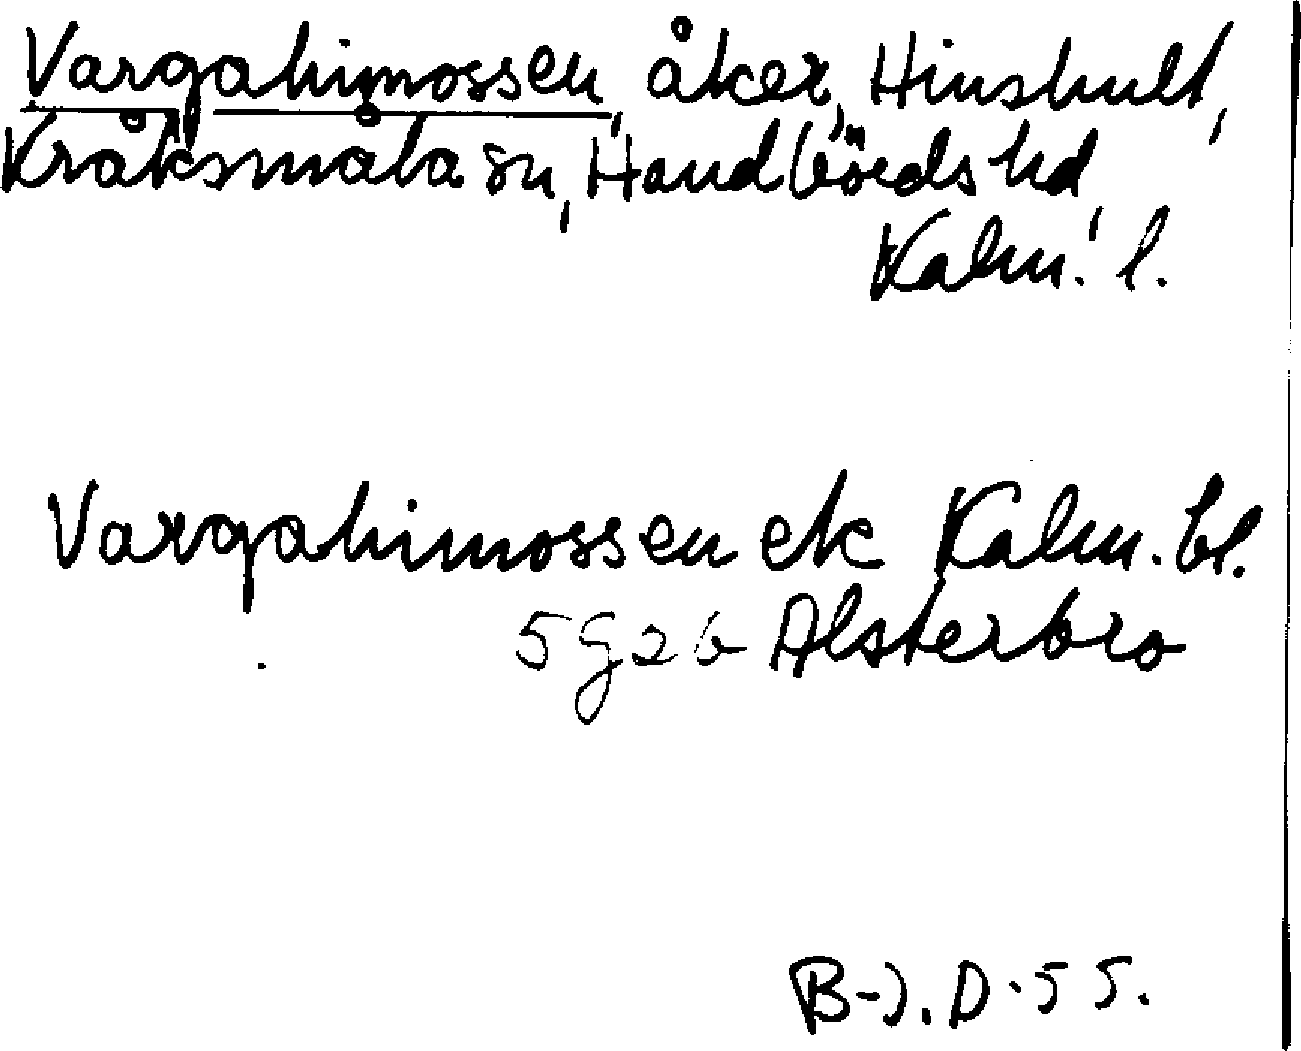 Vargahimossen, åker, Hinshult,
Kråksmåla sn, Handbörds hd,
Kalm. l.
Vargahimossen ek Kalm. bl.
5g2b Alsterbro
B-J. D. 55.